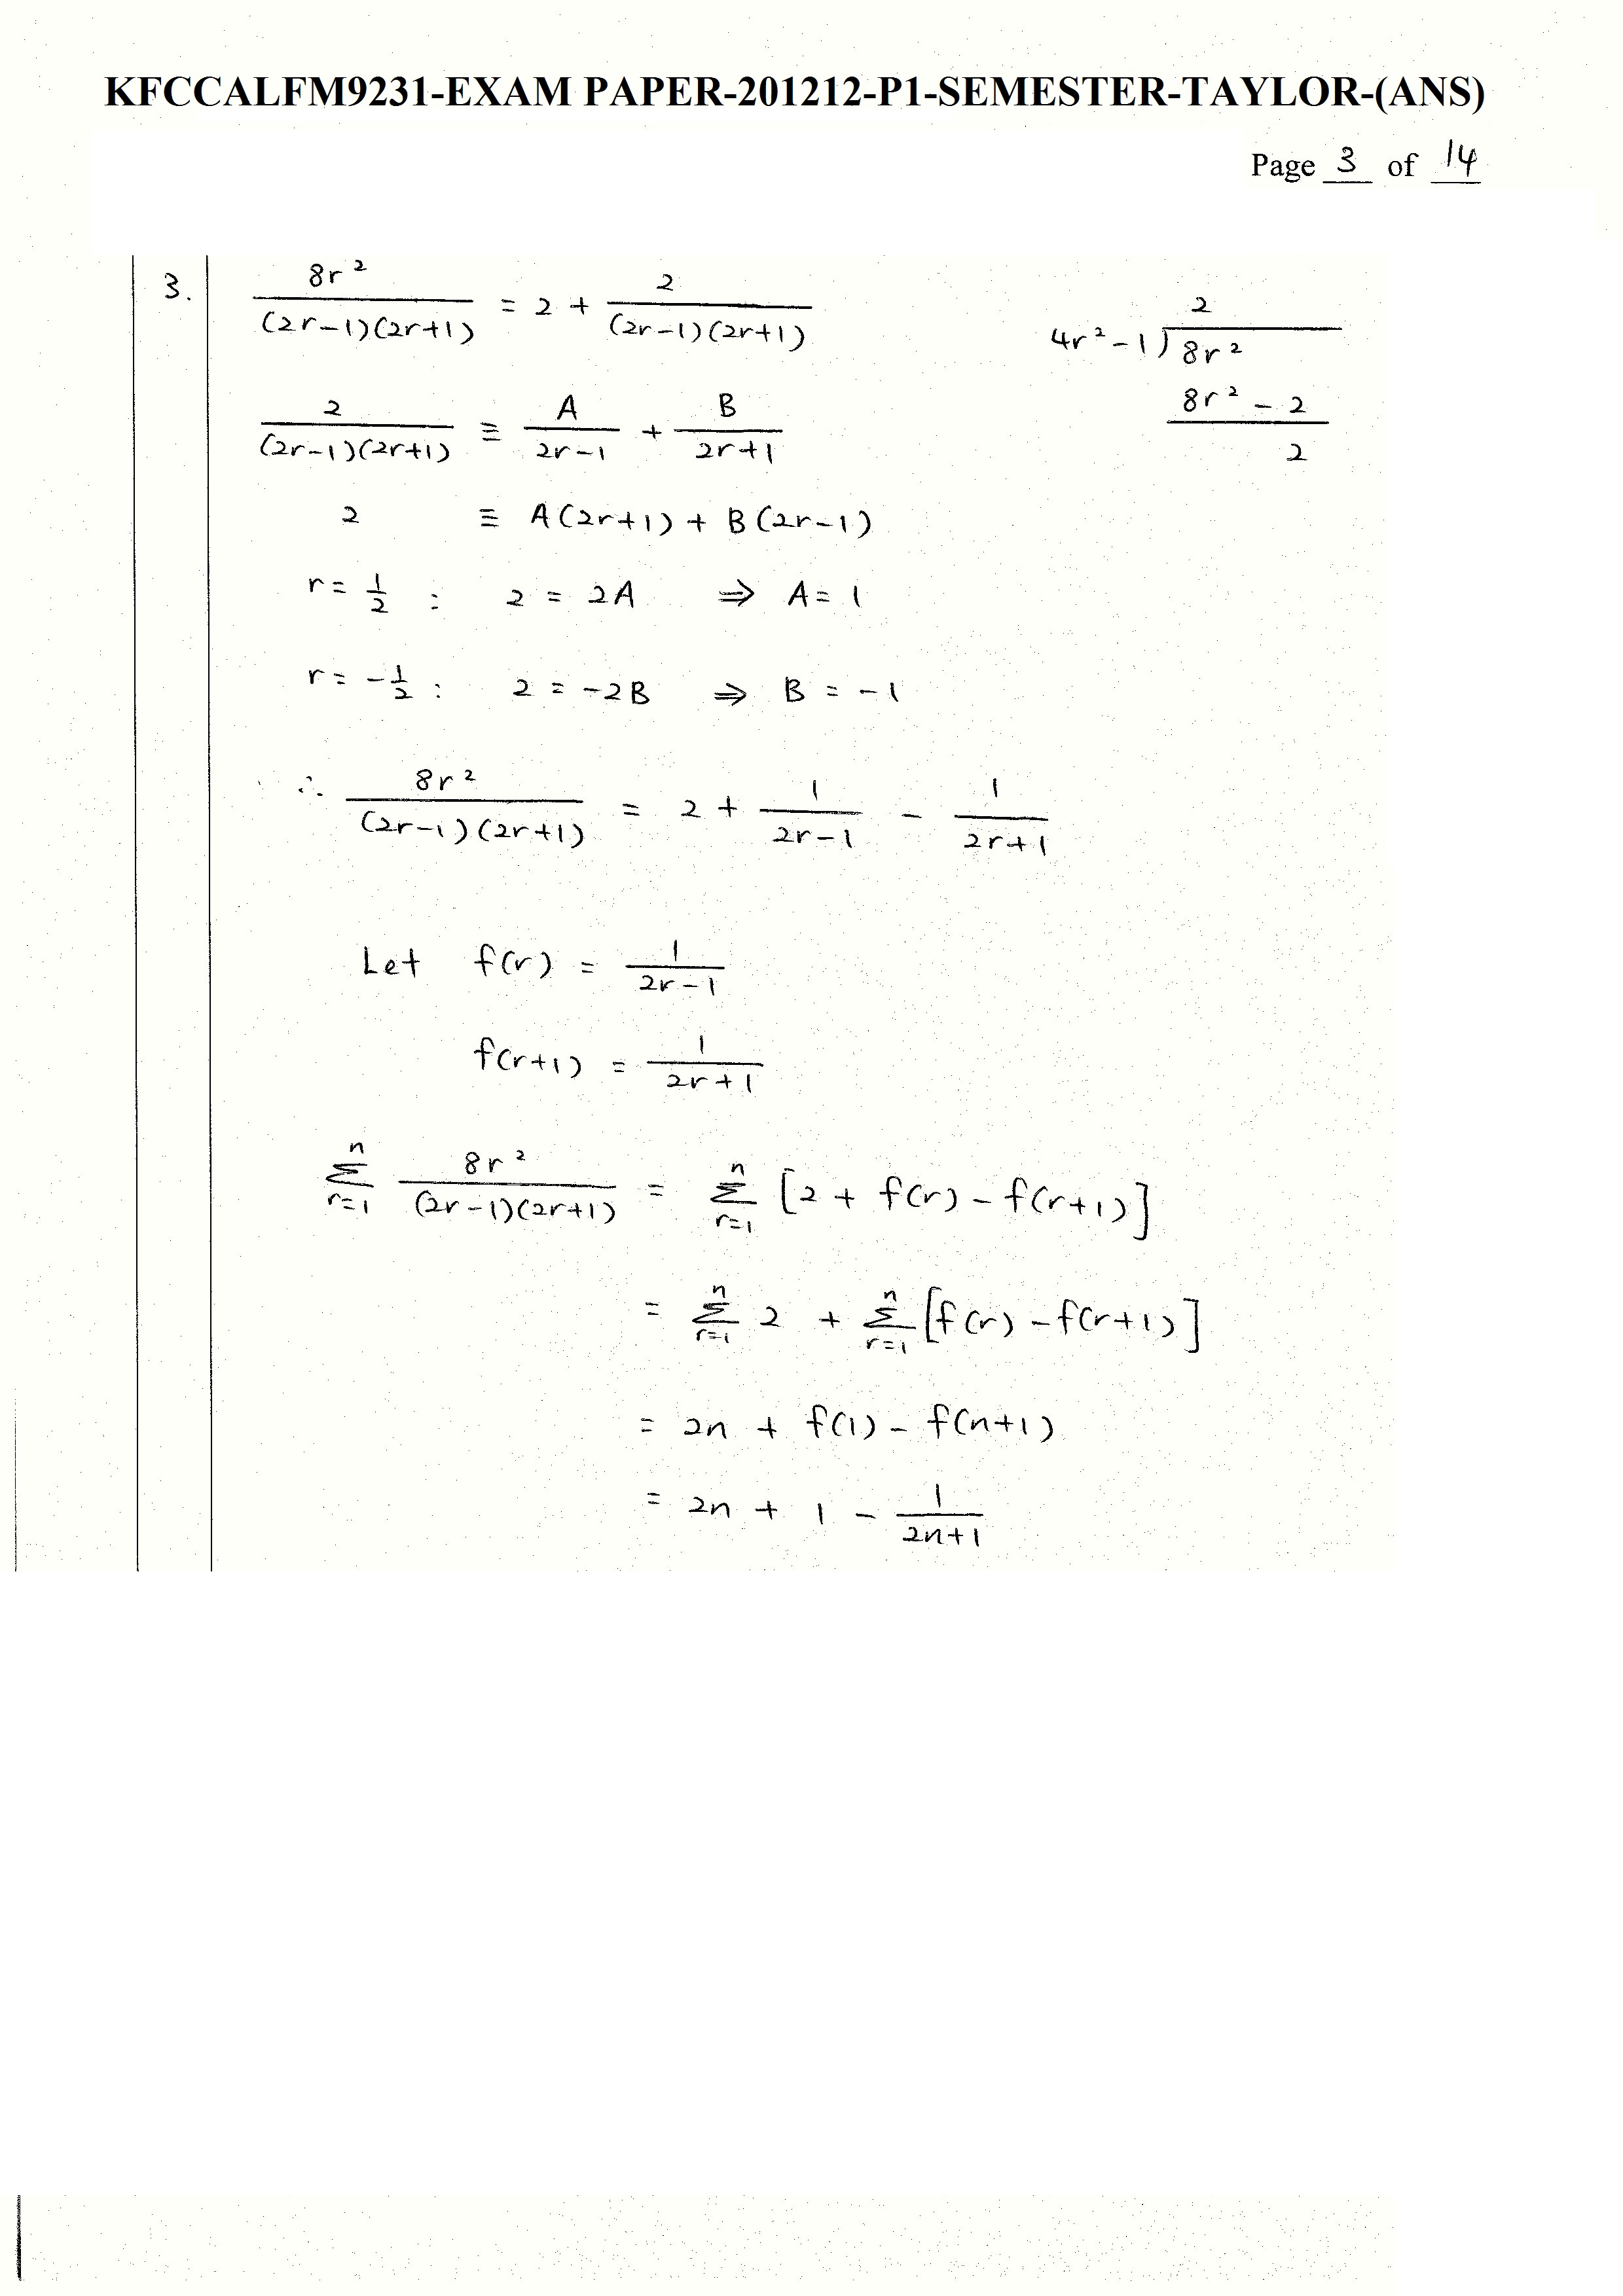 KFCCALFM9231-EXAM PAPER-201212-P1-SEMESTER-TAYLOR-(ANS)
Page 3 of 14
3. 8r²/((2r-1)(2r+1)) = 2 + 2/((2r-1)(2r+1))
2
4r²-1) 8r²
8r² - 2
2
2/((2r-1)(2r+1)) ≡ A/(2r-1) + B/(2r+1)
2 ≡ A(2r+1) + B(2r-1)
r = 1/2 : 2 = 2A ⇒ A = 1
r = -1/2 : 2 = -2B ⇒ B = -1
∴ 8r²/((2r-1)(2r+1)) = 2 + 1/(2r-1) - 1/(2r+1)
Let f(r) = 1/(2r-1)
f(r+1) = 1/(2r+1)
n Σ r=1 8r²/((2r-1)(2r+1)) = n Σ r=1 [2 + f(r) - f(r+1)]
= n Σ r=1 2 + n Σ r=1 [f(r) - f(r+1)]
= 2n + f(1) - f(n+1)
= 2n + 1 - 1/(2n+1)